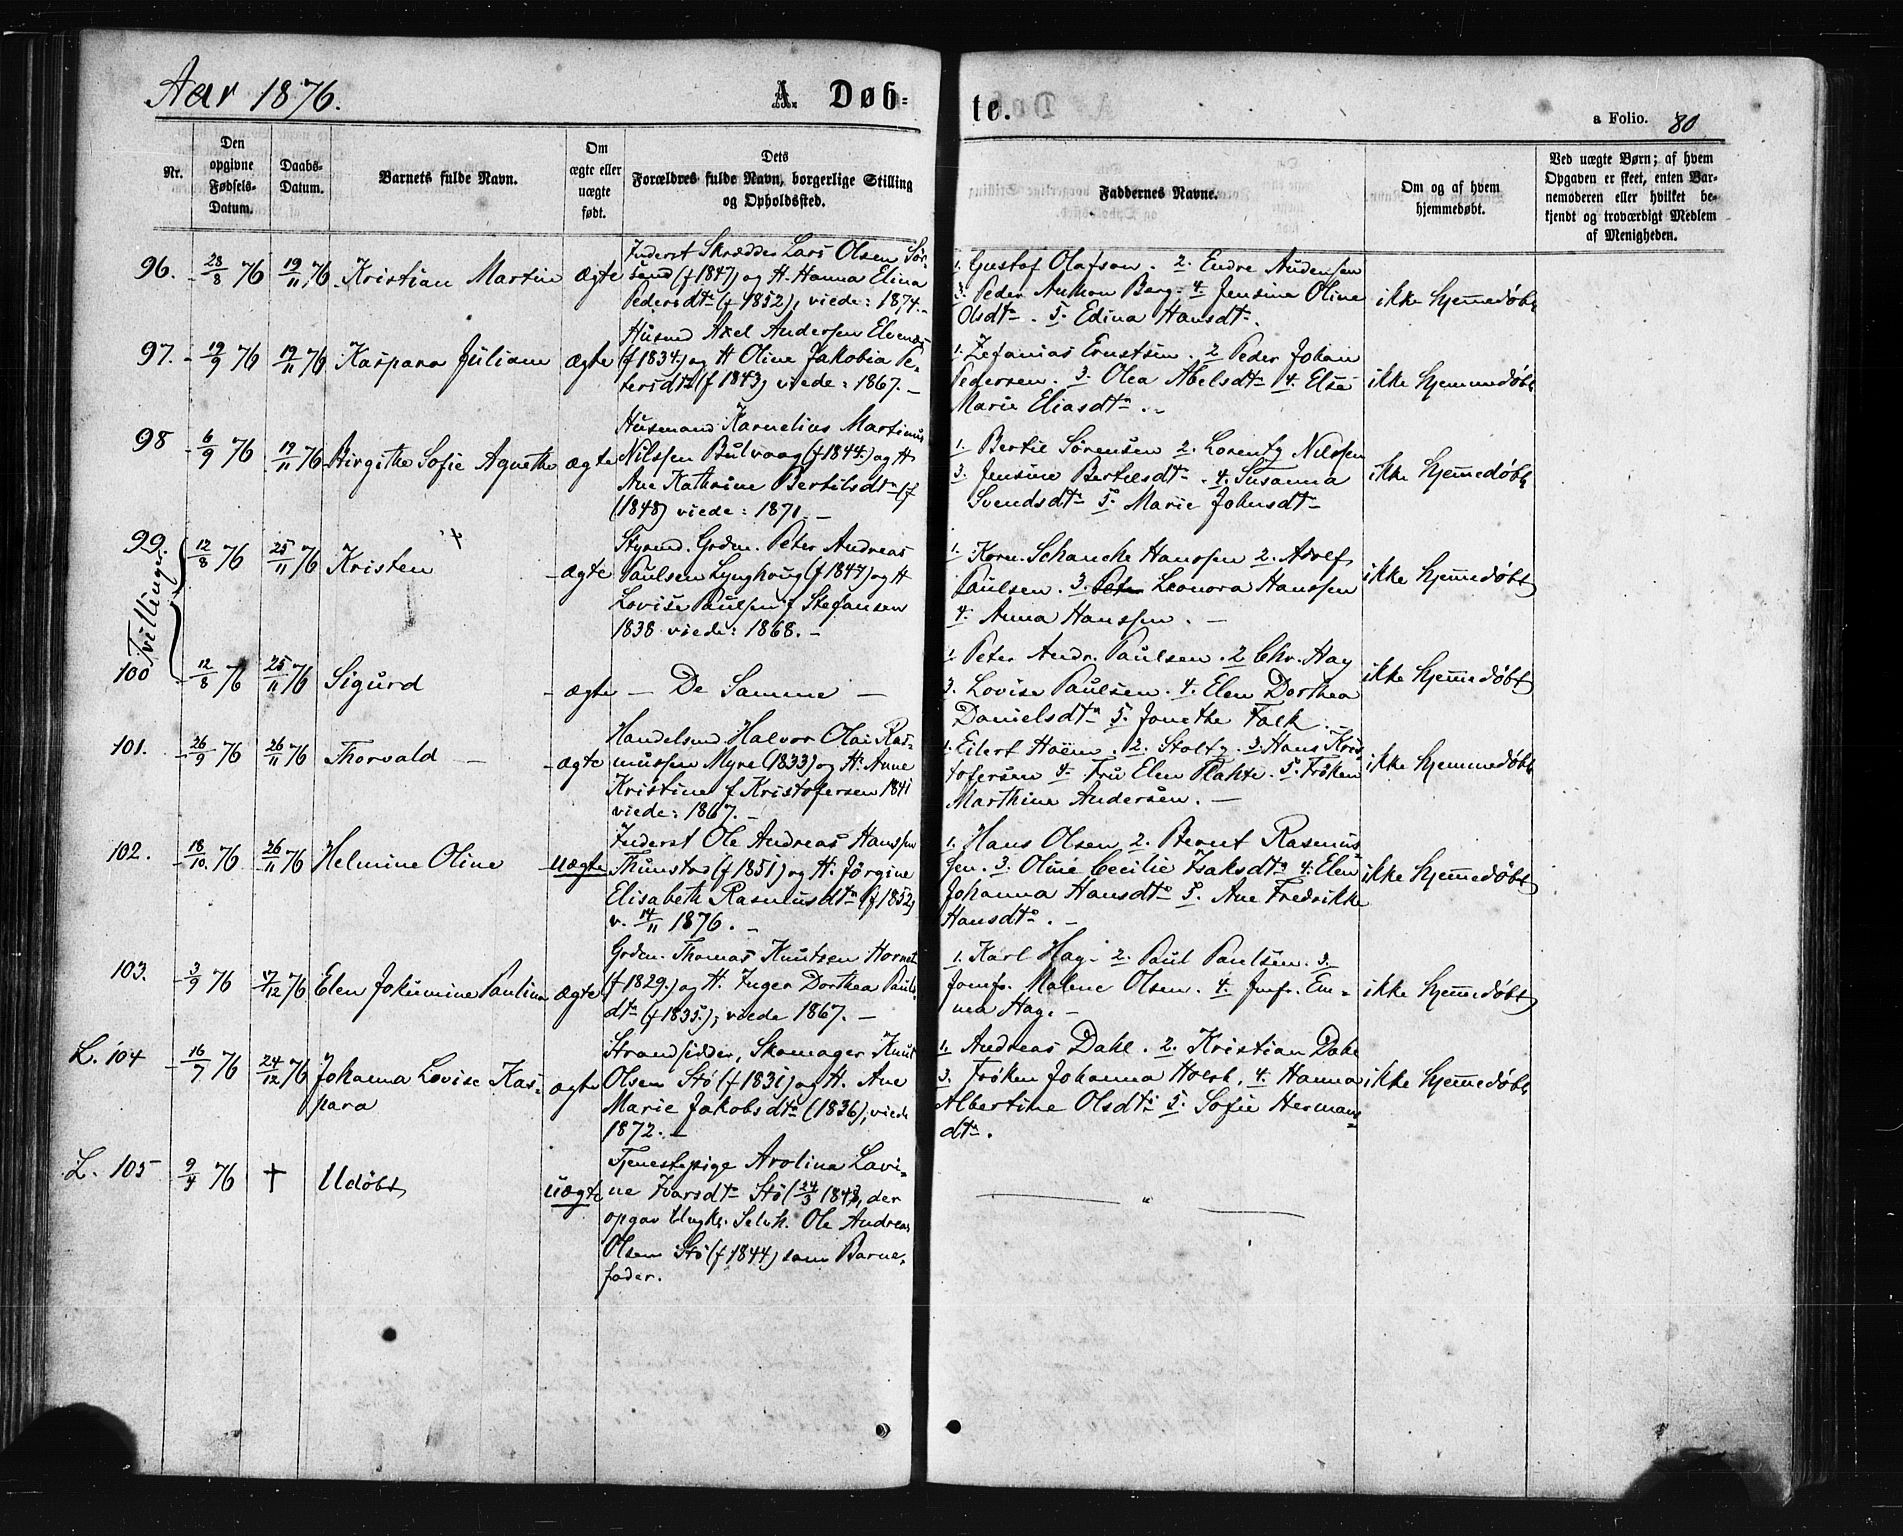 Aar 1876.
A. Døb-
te.
a Folio. 80
Nr.
Den opgivne Fødsels-Datum.
Daabs-Datum.
Barnets fulde Navn.
Om ægte eller uægte født.
Dets Forældres fulde Navn, borgerlige Stilling og Opholdssted.
Faddernes Navne.
Om og af hvem hjemmedøbt.
Ved uægte Børn; af hvem Opgaven er skeet, enten Barnemoderen eller hvilket bekjendt og troværdigt Medlem af Menigheden.
96. 28/8 76 19/11 76 Kristian Martin ægte
Inderst Skrædder Lars Olsen Sør-
sand (f 1847) og H. Hanna Elina
Pedersdtr (f 1852), viede: 1874.-
1. Gustaf Olafson. 2. Endre Audensen
3. Peder Ankon Berg. 4. Jensine Oline
Olsdtr. 5. Edina Hansdtr.
ikke hjemmedøbt
97. 19/9 76 19/11 76 Kaspara Juliane ægte
Husmd Axel Andersen Elvenæs
(f 1834) og H Oline Jakobia Pe-
tersdtr (f 1843) viede: 1867.-
1. Zefanias Ernstsen. 2 Peder Johan
Pedersen. 3. Olea Abelsdtr 4. Else
Marie Eliasdtr.
ikke hjemmedøbt
98 6/9 76 19/11 76 Birgithe Sofie Agnethe ægte
Husmand Kornelius Martinus
Nilssen Bulvaag (f 1844) og H
Ane Kathrine Bertilsdtr (f
(1848) viede: 1871.-
1. Bertil Sørensen 2. Lorentz Nilssen
3. Jensine Bertilsdtr. 4. Susanna
Svendsdtr 5. Marie Johnsdtr
ikke hjemmedøbt
Tvillinger
99. 12/8 76 25/11 76 Kristen ægte
Styrmd. Grdm. Peter Andreas
Paulsen Lynghoug (f 1847) og H
Lovise Paulsen f Stefansen
1838 viede: 1868.-
1. Korn. Schanche Hanssen 2. Adolf
Paulsen. 3. Leonora Hanssen
4. Anna Hanssen.
ikke hjemmedøbt
100 12/8 76 25/11 76 Sigurd ægte
- De Samme -
1. Peter Andr. Paulsen. 2 Chr. Hag
3. Lovise Paulsen. 4. Elen Dorthea
Danielsdtr 5. Jonethe Falk.
ikke hjemmedøbt
101. 26/9 76 26/11 76 Thorvald ægte
Handelsmd Halvor Olai Ras-
mussen Myre (1833) og H. Anne
Kristine f Kristofersen 1841
viede: 1867.-
1. Eilert Hoëm. 2. Stoltz. 3. Hans Kris
tofersen 4. Fru Elen Plahte. 5. Frøken
Marthina Andersen.
ikke hjemmedøbt
102. 18/10 76 26/11 76 Helmine Oline uægte
Inderst Ole Andreas Hanssen
Thunstad (f 1851) og H. Jørgine
Elisabeth Rasmusdtr (f 1852)
v. 14/11 1876.-
1. Hans Olsen 2. Bernt Rasmus
sen. 3. Oline Cecilie Isaksdtr 4. Elen
Johanna Hansdtr 5. Ane Fredrikke
Hansdtr.
ikke hjemmedøbt
103. 3/9 76 17/12 76 Elen Jokumine Pauline ægte
Grdm. Thomas Knutsen Hornet
(f 1829.) og H. Inger Dorthea Pauls-
dtr (f 1835.), viede 1867.-
1. Karl Hag. 2. Paul Paulsen. 3.
Jomfr. Malene Olsen. 4. Jmfr. Em-
ma Hag.
ikke hjemmedøbt
L. 104 16/7 76 24/12 76 Johanna Lovise Kas-
para
ægte
Strandsidder, Skomager Knut
Olsen Stø (f 1831) og H. Ane
Marie Jakobsdtr (1836), viede
1872.-
1. Andreas Dahl. 2. Kristian Dahl
3. Frøken Johanna Holst. 4. Hanna
Albertine Olsdtr 5. Sofie Hermans
dtr.
ikke hjemmedøbt
L. 105 9/4 76 † Udøbt uægte
Tjenestepige Arolina Lavi-
ne Ivarsdtr Stø (24/3 1843, der
opgav Ungk. Selvh. Ole Andreas
Olsen Stø (f 1844) som Barne-
fader.